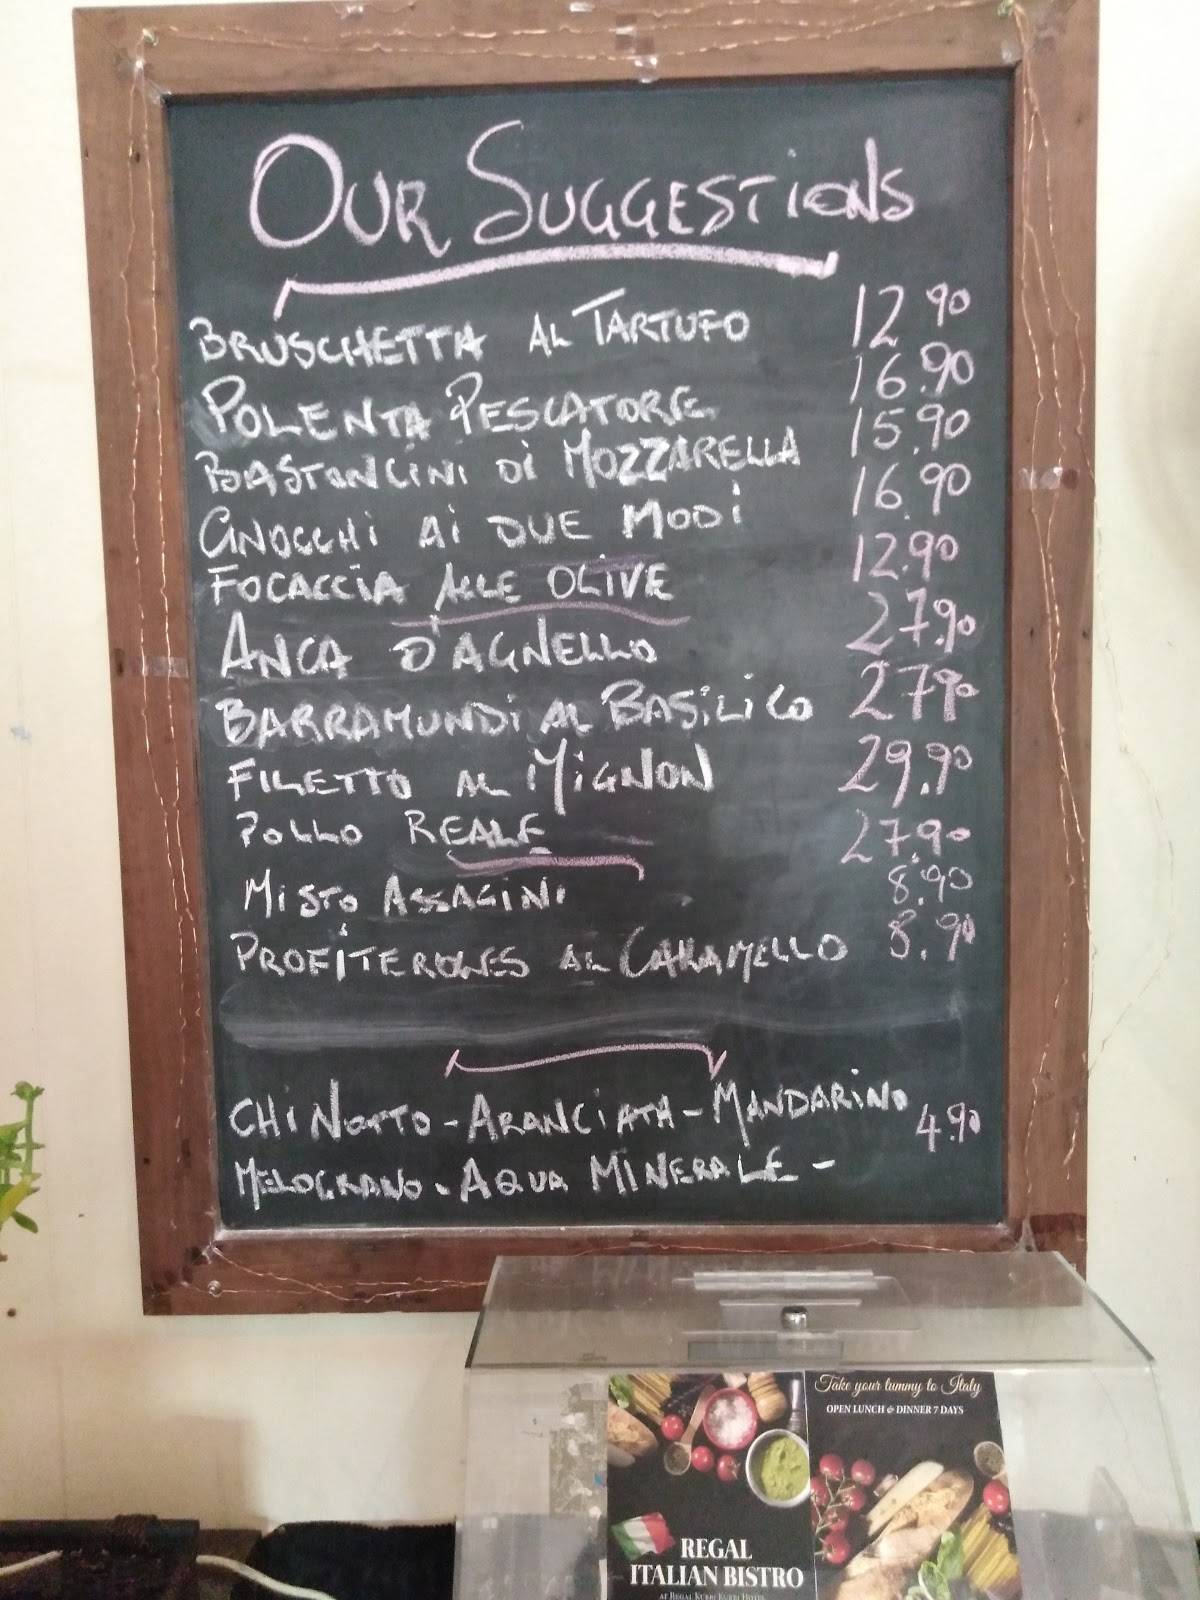 OUR SUGGESTIONS
BRUSCHETTA AL TARTUFO 12.90
POLENTA PESCATORE 16.90
BASTONCINI DI MOZZARELLA 15.90
GNOCCHI AI DUE MODI 16.90
FOCACCIA ALLE OLIVE 12.90
ANCA D'AGNELLO 27.90
BARRAMUNDI AL BASILICO 27.90
FILETTO AL MIGNON 29.90
POLLO REALE 27.90
MISTO ASSAGINI 8.90
PROFITEROLES AL CARAMELLO 8.90
CHINOTTO - ARANCIATA - MANDARINO 4.90
MELOGRANO - AQUA MINERALE -
Take your tummy to Italy
OPEN LUNCH & DINNER 7 DAYS
REGAL
ITALIAN BISTRO
AT REGAL KURRI KURRI HOTEL